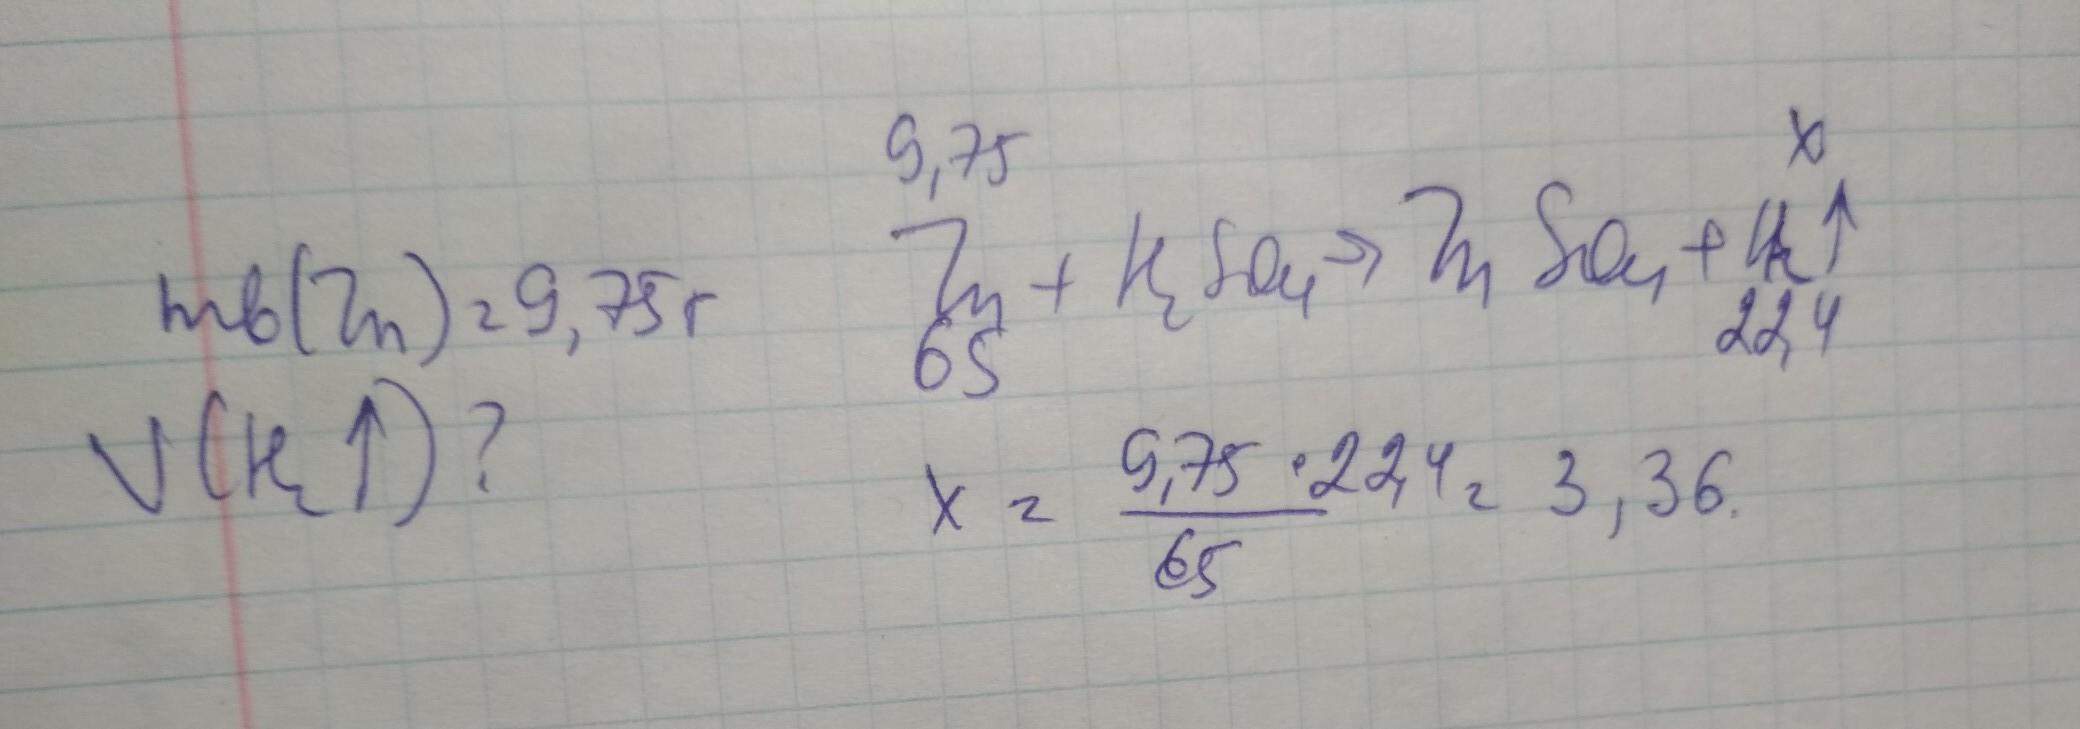 mв(Zn)=9,75г
V(H₂↑)?
9,75 x
Zn + H₂SO₄ → ZnSO₄ + H₂↑
65 22,4
x = 9,75 · 22,4 / 65 = 3,36.